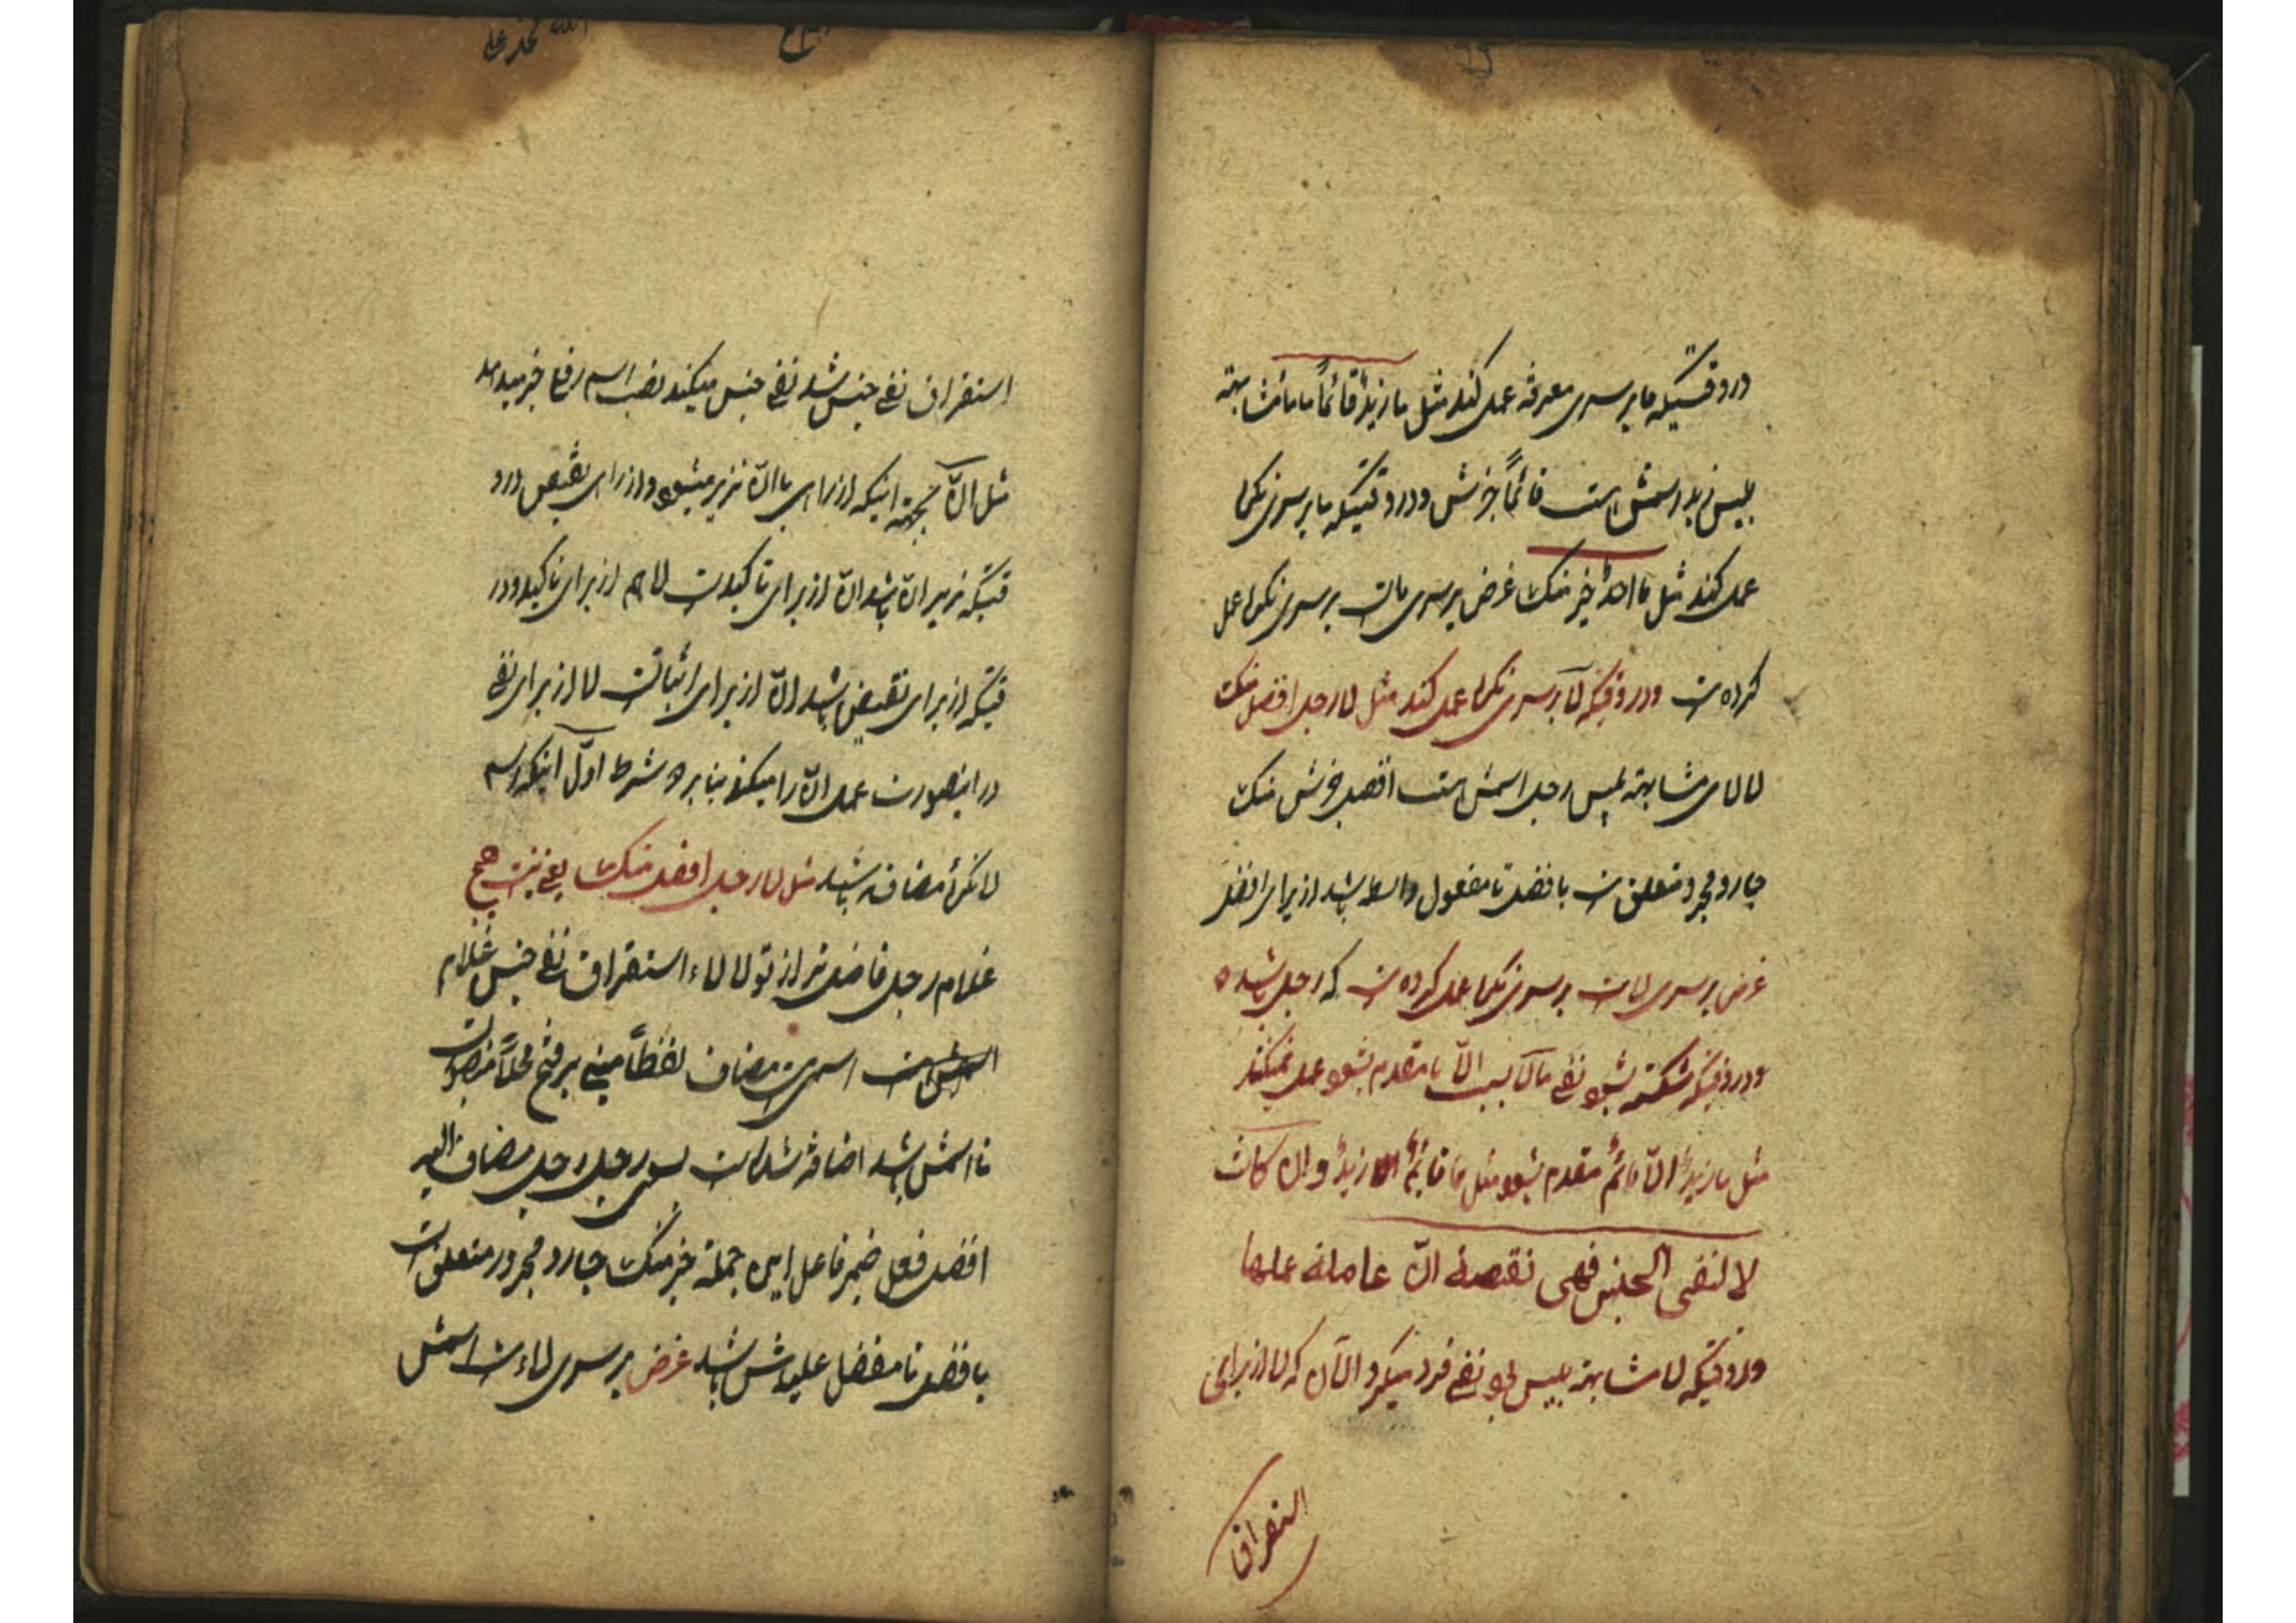 در وقتیکه ما بر سری معرفه عمل کند مثل ما زیدٌ قائماً ما مشابهته
بلیس زید اسمش است قائماً خبرش و در وقتیکه ما بر سری نکرا
عمل کند مثل ما احدٌ خیر منک غرض بر سری مات بر سری نکرا عمل
کرده است و در وقتیکه لا بر سری نکرا عمل کند مثل لا رجل افضل منک
لا لای مشابهته بلیس رجل اسمش است افضل خبرش منک
جار و مجرور متعلق است بافضل تا مفعول واسطه باشد از برای افضل
غرض بر سری لاست بر سری نکرا عمل کرده است که رجل باشد
و در وقتیکه شکسته بشود نفی ما لا بسبب الّا یا مقدم بشود عمل نمیکند
مثل ما زیدٌ الّا قائمٌ مقدم بشود مثل ما قائمٌ الا زیدٌ وان کانت
لا لنفی الجنس فهی نقیصة انّ عاملة عملها
و در وقتیکه لا مشابهته بلیس بود نفی فرد میکرد الآن که لا از برای
استغراق
استغراق نفی جنس شد نفی جنس میکند نصب اسم رفع خبر میدهد
مثل انّ بجهته اینکه از برای با انّ نزیر میشود و از برای نقیض در و
قتیکه نزیر انّ باشد انّ از برای تاکید است لا هم از برای تاکید و در
قتیکه از برای نقیض باشد انّ از برای اثبات است لا از برای نفی
در اینصورت عمل انّ را میکند بنابر ه شرط اوّل اینکه اسم
لا نکرهٔ مضاف باشد مثل لا رجل افضل منک یعنی نیست هیچ
غلام رجل فاضل تر از تو لا لاء استغراق نفی جنس غلام
اسمش است اسمی است مضاف لفظاً مبنی بر فتح محلاً منصوب است
تا اسمش باشد اضافه شده است بسوی رجل رجل مضاف الیه
افضل فعل ضمیر فاعل این جمله خبر منک جار و مجرور متعلق است
بافضل تا مفضل علیهش باشد غرض بر سری لاء است اسمش